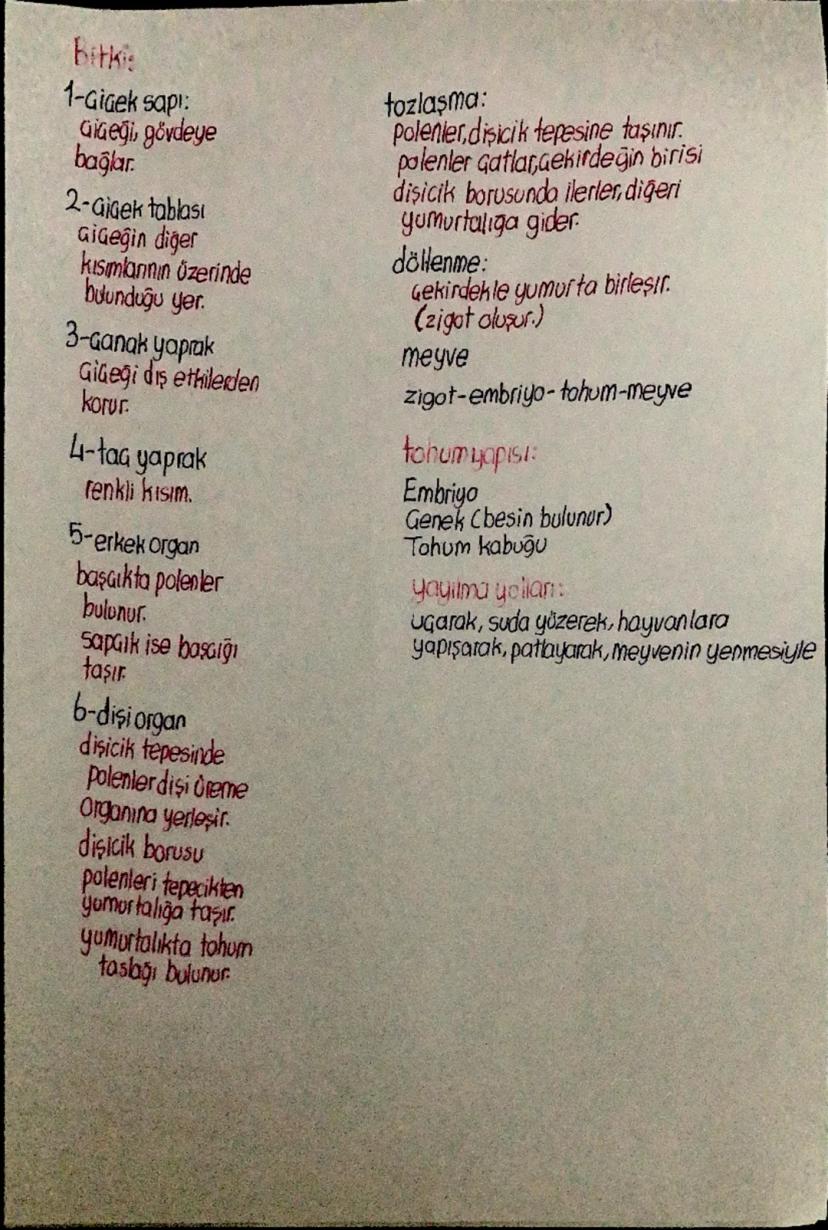 Bitki:
1-Çiçek sapı:
Çiçeği, gövdeye
bağlar.
2-Çiçek tablası
Çiçeğin diğer
kısımlarının üzerinde
bulunduğu yer.
3-Çanak yaprak
Çiçeği dış etkilerden
korur.
4-taç yaprak
renkli kısım.
5-erkek organ
başçıkta polenler
bulunur.
sapçık ise başçığı
taşır.
6-dişi organ
dişicik tepesinde
polenler dişi üreme
organına yerleşir.
dişicik borusu
polenleri tepecikten
yumurtalığa taşır.
yumurtalıkta tohum
taslağı bulunur.
tozlaşma:
polenler, dişicik tepesine taşınır.
polenler çatlar, çekirdeğin birisi
dişicik borusunda ilerler, diğeri
yumurtalığa gider.
döllenme:
çekirdekle yumurta birleşir.
(zigot oluşur.)
meyve
zigot-embriyo-tohum-meyve
tohum yapısı:
Embriyo
Çenek (besin bulunur)
Tohum kabuğu
yayılma yolları:
uçarak, suda yüzerek, hayvanlara
yapışarak, patlayarak, meyvenin yenmesiyle